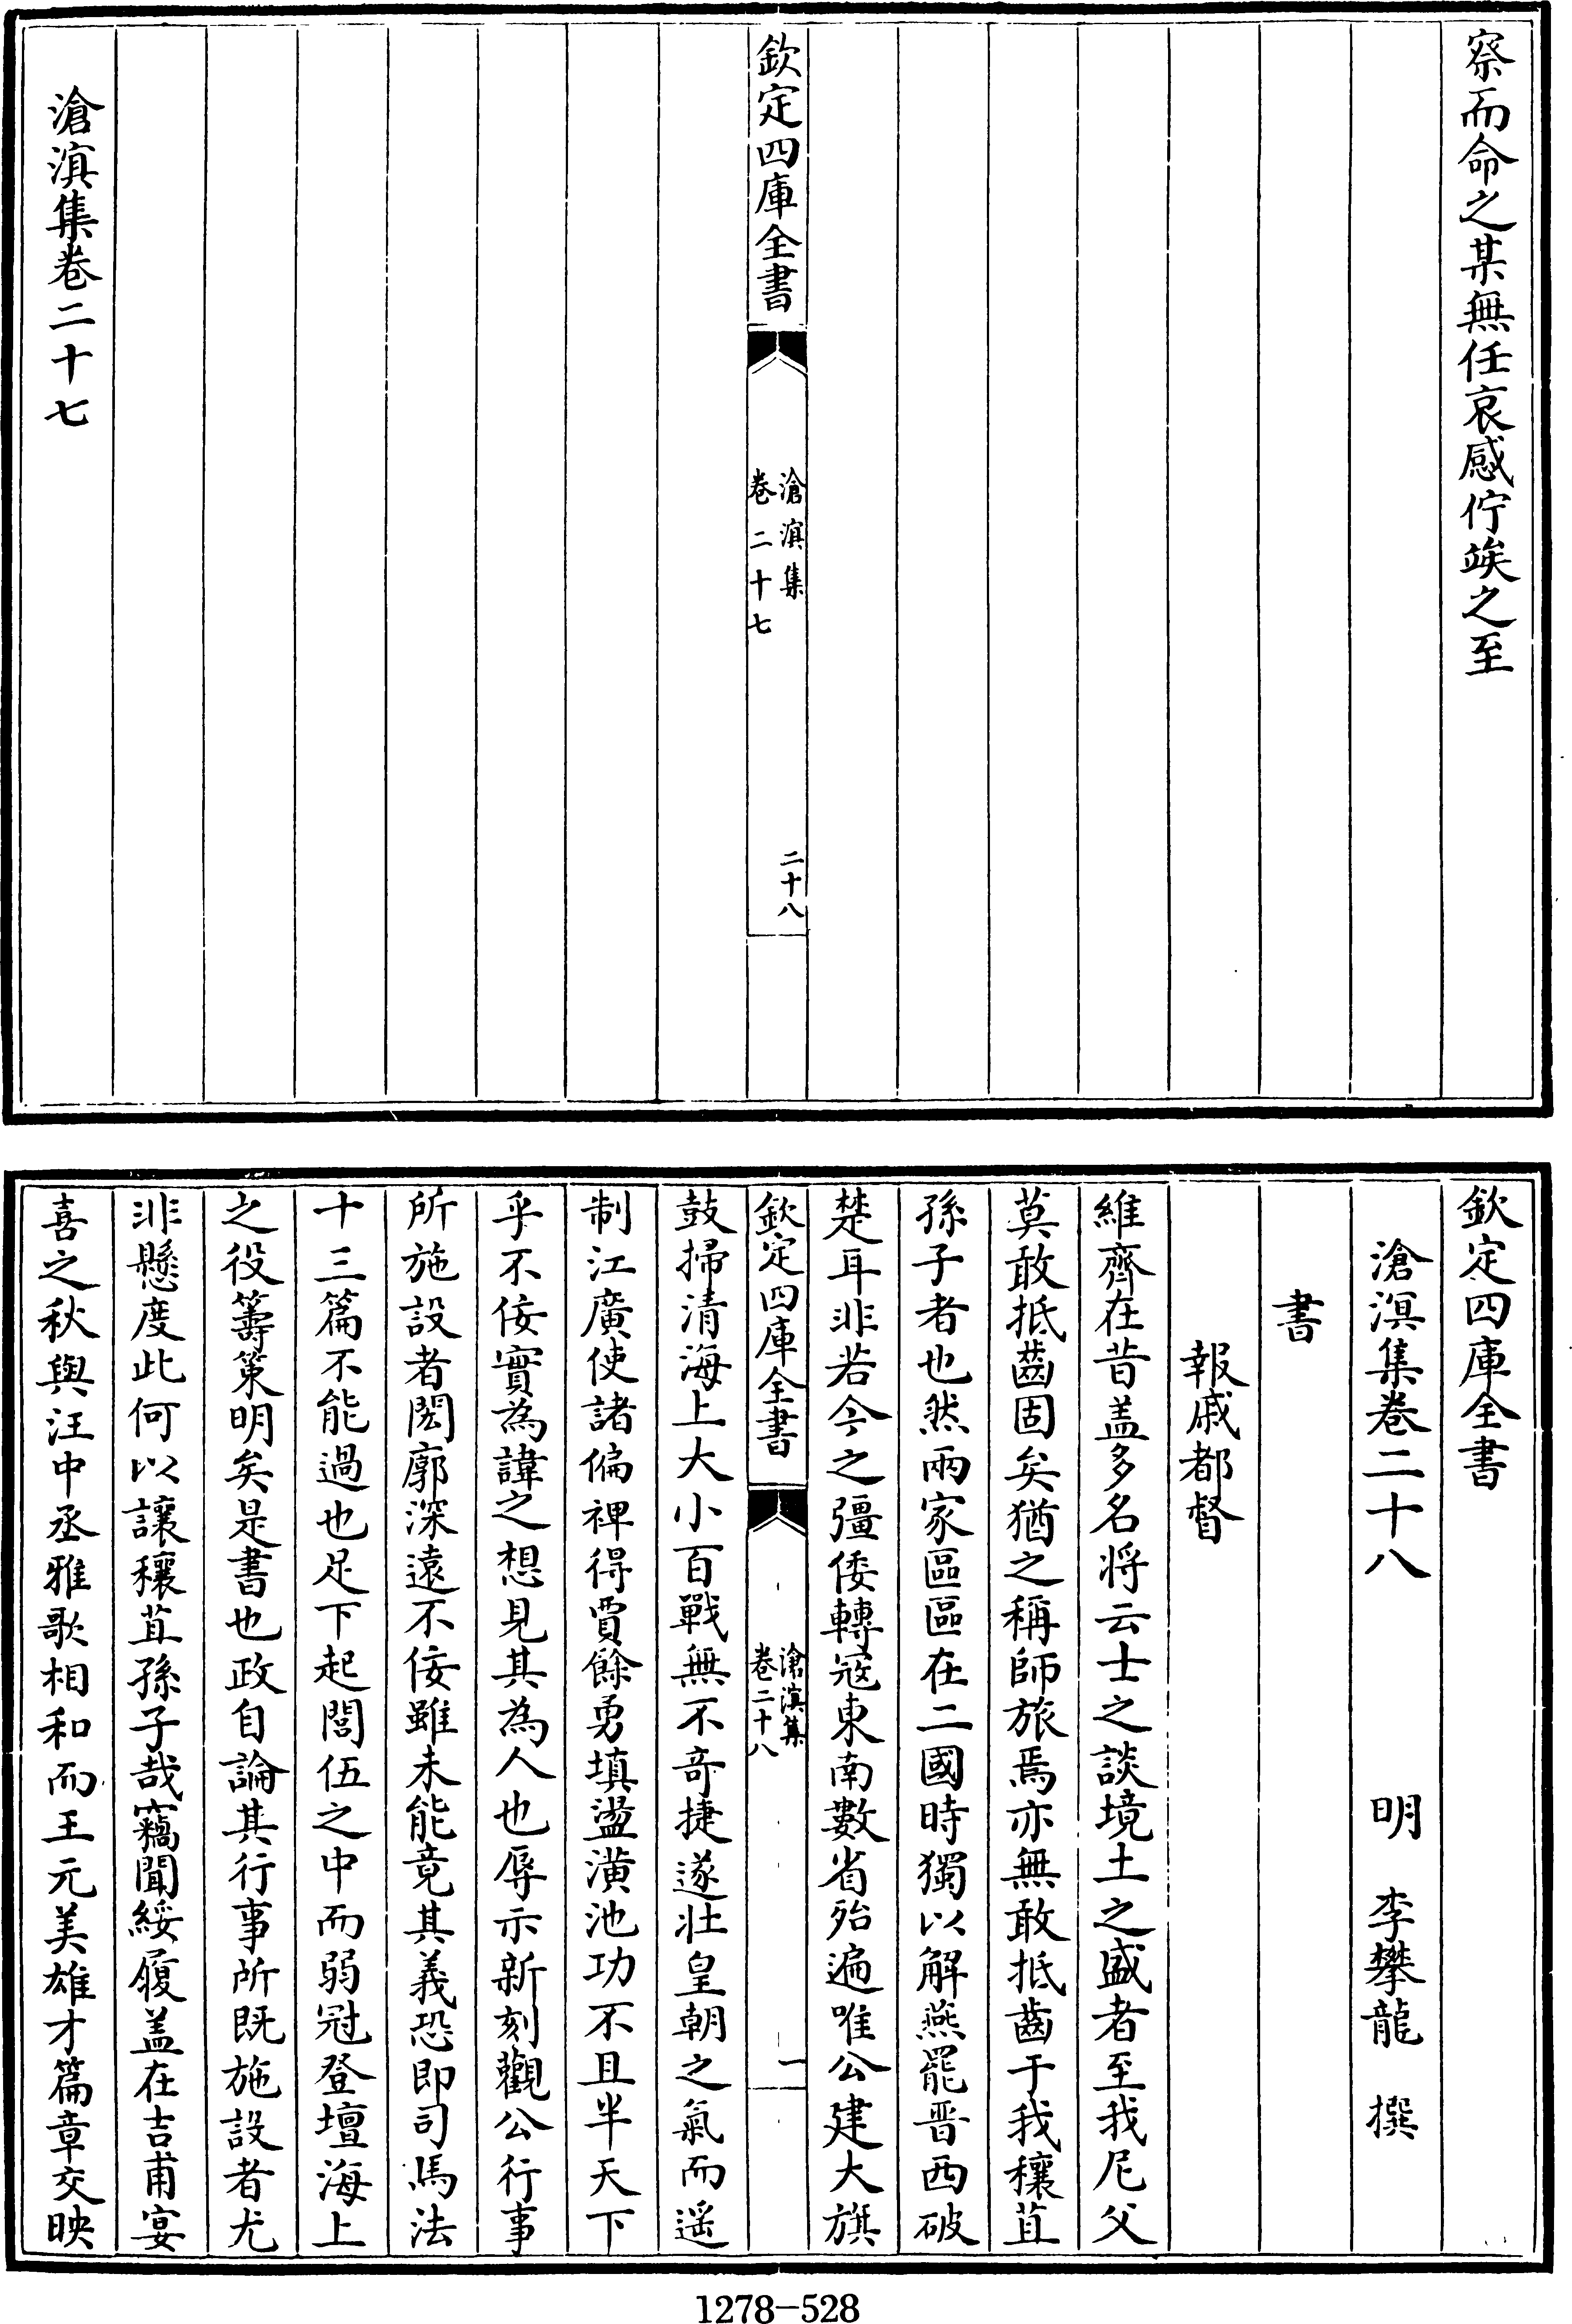 察而命之某無任哀感佇竢之至
欽定四庫全書
滄溟集
卷二十七
二十八
滄溟集卷二十七
欽定四庫全書
滄溟集卷二十八
明 李攀龍 撰
書
報戚都督
維齊在昔盖多名将云士之談境土之盛者至我尼父
莫敢抵齒固矣猶之稱師旅焉亦無敢抵齒于我穰苴
孫子者也然兩家區區在二國時獨以解燕罷晋西破
楚耳非若今之彊倭轉寇東南數省殆遍唯公建大旗
欽定四庫全書
滄溟集
卷二十八
一
鼓掃清海上大小百戰無不竒捷遂壯皇朝之氣而遥
制江廣使諸偏裨得賈餘勇填盪潢池功不且半天下
乎不佞實為諱之想見其為人也辱示新刻觀公行事
所施設者閎廓深遠不佞雖未能竟其義恐即司馬法
十三篇不能過也足下起閭伍之中而弱冠登壇海上
之役籌䇿明矣是書也政自論其行事所既施設者尤
非懸度此何以讓穰苴孫子哉竊聞綏履盖在吉甫宴
喜之秋與汪中丞雅歌相和而王元美雄才篇章交映
1278-528